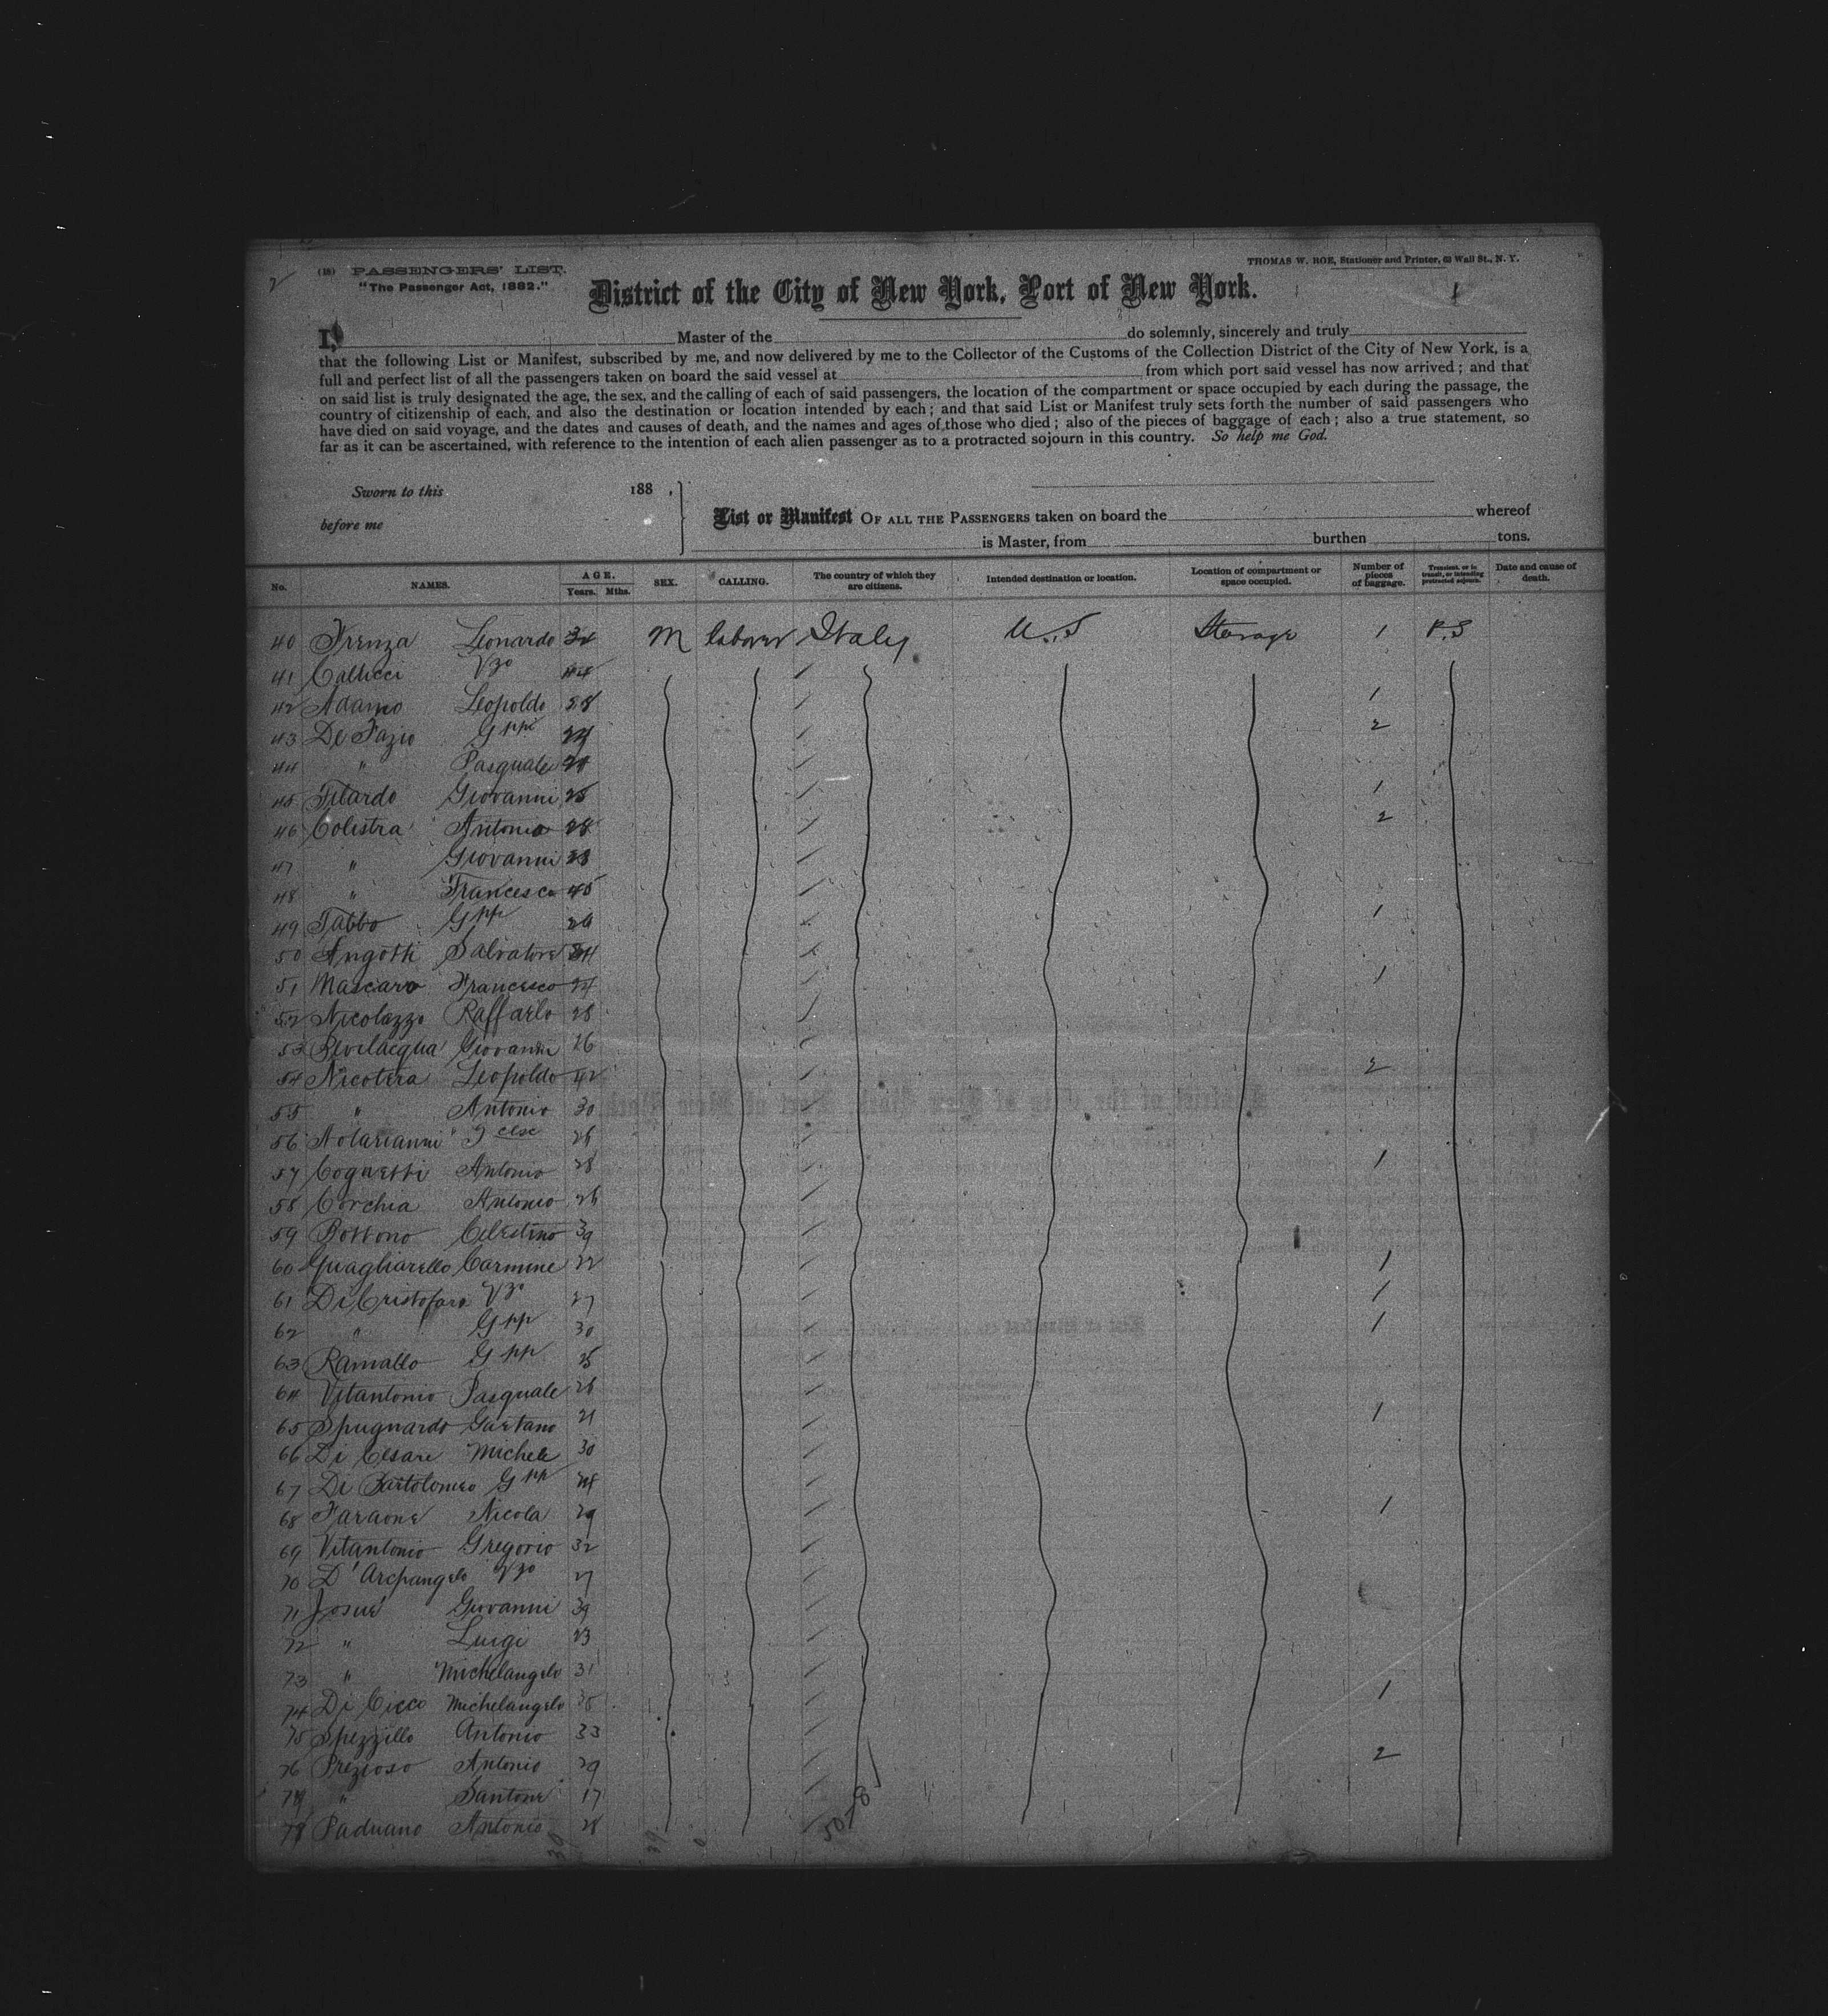 2
(18) PASSENGERS' LIST.
"The Passenger Act, 1882."
THOMAS W. ROE, Stationer and Printer, 63 Wall St., N. Y.
1
District of the City of New York, Port of New York.
I, Master of the do solemnly, sincerely and truly
that the following List or Manifest, subscribed by me, and now delivered by me to the Collector of the Customs of the Collection District of the City of New York, is a
full and perfect list of all the passengers taken on board the said vessel at from which port said vessel has now arrived; and that
on said list is truly designated the age, the sex, and the calling of each of said passengers, the location of the compartment or space occupied by each during the passage, the
country of citizenship of each, and also the destination or location intended by each; and that said List or Manifest truly sets forth the number of said passengers who
have died on said voyage, and the dates and causes of death, and the names and ages of those who died; also of the pieces of baggage of each; also a true statement, so
far as it can be ascertained, with reference to the intention of each alien passenger as to a protracted sojourn in this country. So help me God.
Sworn to this 188 ,
before me
List or Manifest OF ALL THE PASSENGERS taken on board the whereof
is Master, from burthen tons.
No. NAMES. AGE. Years. Mths. SEX. CALLING. The country of which they are citizens. Intended destination or location. Location of compartment or space occupied. Number of pieces of baggage. Transient, or in transit, or intending protracted sojourn. Date and cause of death.
40 Leonardo M laborer Italy U.S Storage 1 P.S
41 Vzo
42 Adamo Leopoldo 28 1
43 De Fazio Gppe 2
44 " Pasquale
45 Giovanni 25 1
46 Colistra Antonio 28 2
47 " Giovanni
48 " Francesco 45
49 Gpp 1
50 Angotti Salvatore
51 Mascaro Francesco 24 1
52 Nicolazzo Raffaelo 28
53 Bevilacqua Giovanni 26
54 Nicotera Leopoldo 42 2
55 " Antonio 30
56 Notarianni 26
57 Cognetti Antonio 28 1
58 Corchia Antonio 26
59 Celestino 39
60 Guagliarello Carmine 22 1
61 Di Cristofaro Vzo 27 1
62 " Gpp 30 1
63 Gpp 25
64 Vitantonio Pasquale 26
65 Spugnardo Gaetano 21 1
66 Di Cesare Michele 30
67 Di Bartolomeo Gpp
68 Faraone Nicola 29 1
69 Vitantonio Gregorio 32
70 D'Arcpangelo Vzo 27
71 Josué Giovanni 39
72 " Luigi 23
73 " Michelangelo 31
74 Di Cicco Michelangelo 1
75 Spezzillo Antonio 33
76 Prezioso Antonio 29 2
" Santone 17
78 Paduano Antonio 28